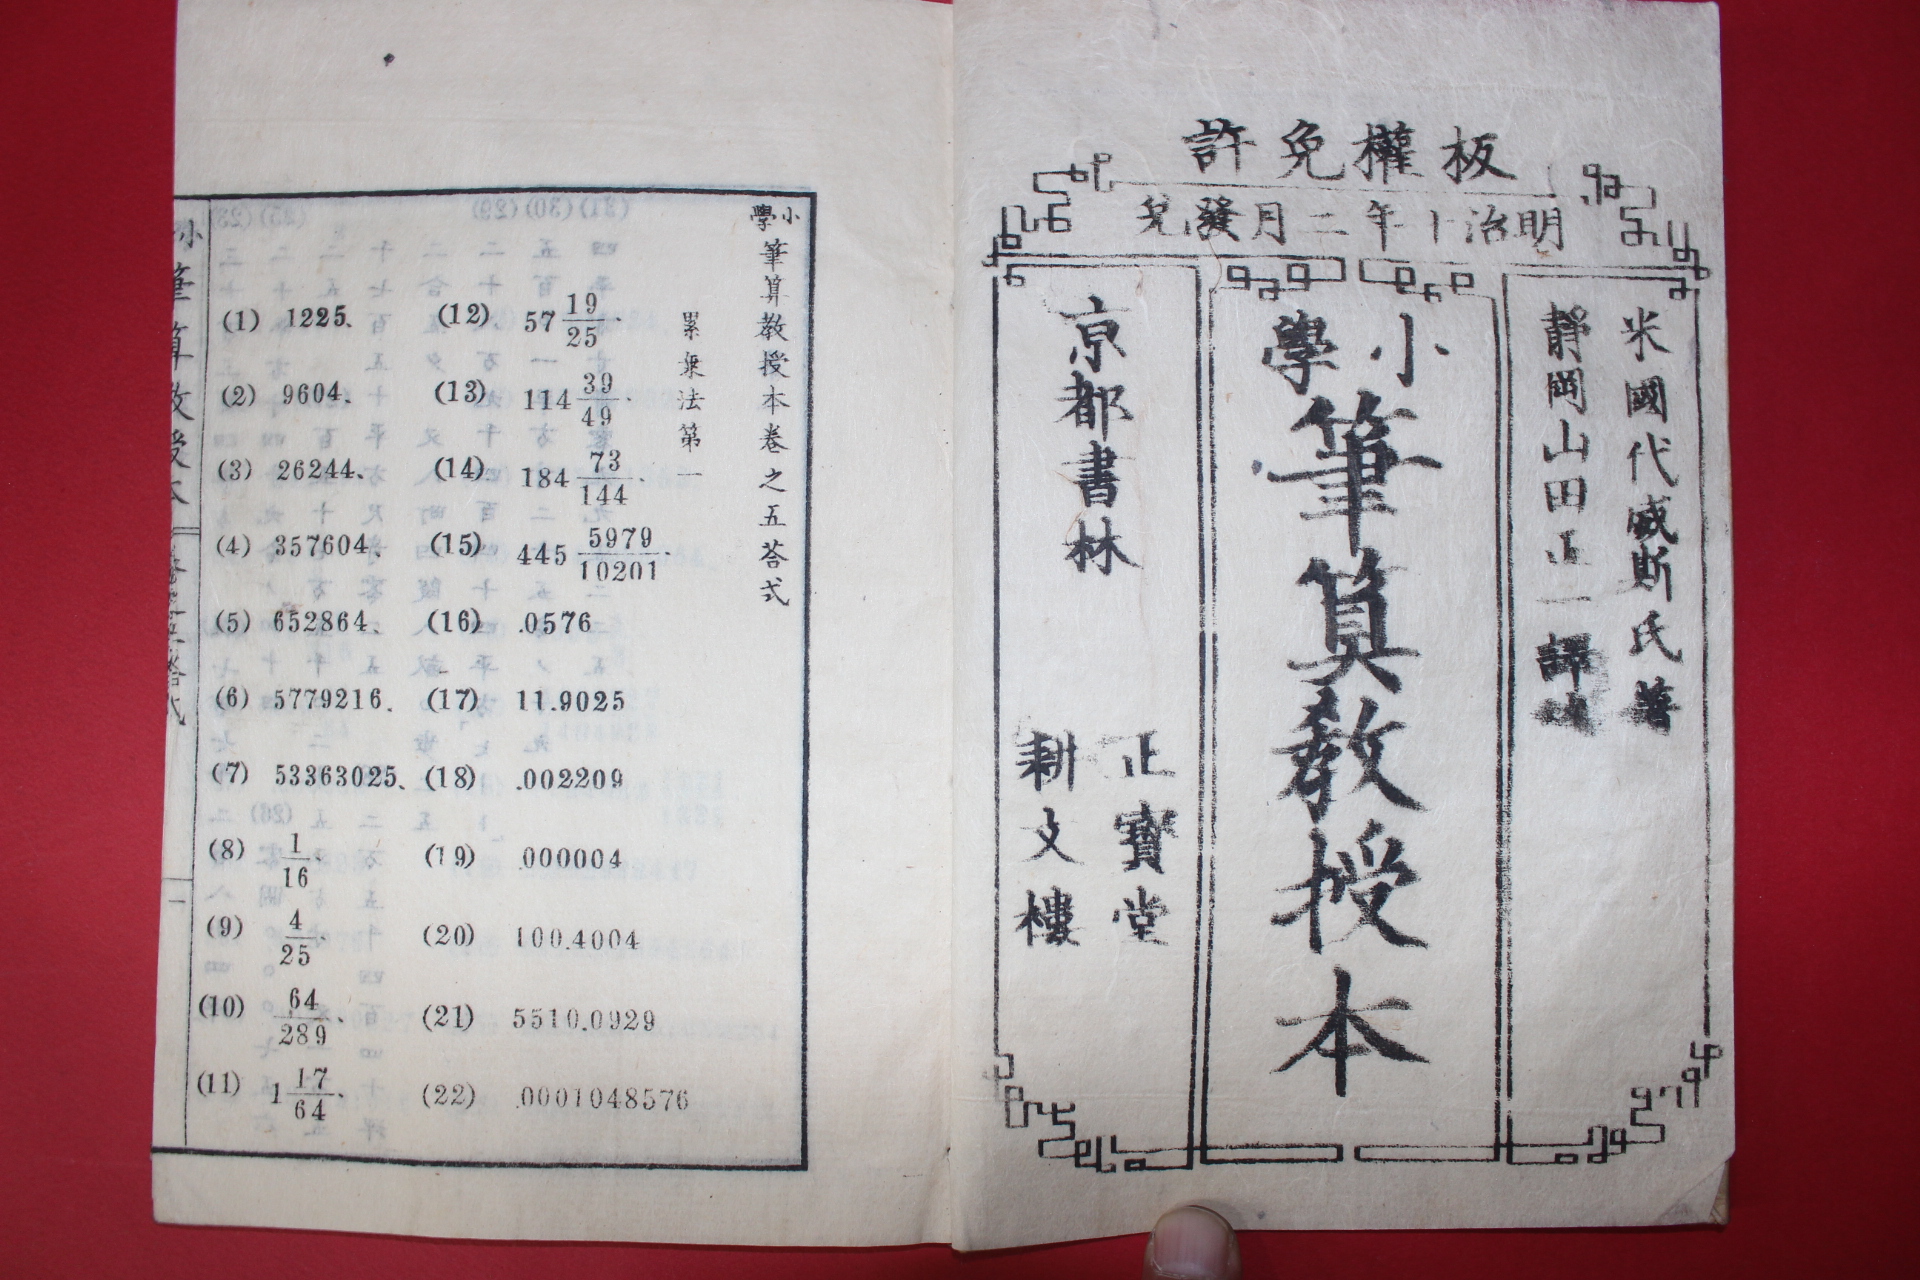 板權免許
明治十年二月發兌
米國代威斯氏著
靜岡山田正一譯
小學筆算教授本
京都書林
正寶堂
耕文樓
小學筆算教授本卷之五荅式
累乗法第一
(1) 1225、
(2) 9604、
(3) 26244、
(4) 357604、
(5) 652864、
(6) 5779216、
(7) 53363025、
(8) 1/16、
(9) 4/25、
(10) 64/289、
(11) 1 17/64、
(12) 57 19/25、
(13) 114 39/49、
(14) 184 73/144、
(15) 445 5979/10201、
(16) .0576
(17) 11.9025
(18) .002209
(19) .000004
(20) 100.4004
(21) 5510.0929
(22) .0001048576
小筆算教授本
卷之五荅式
一